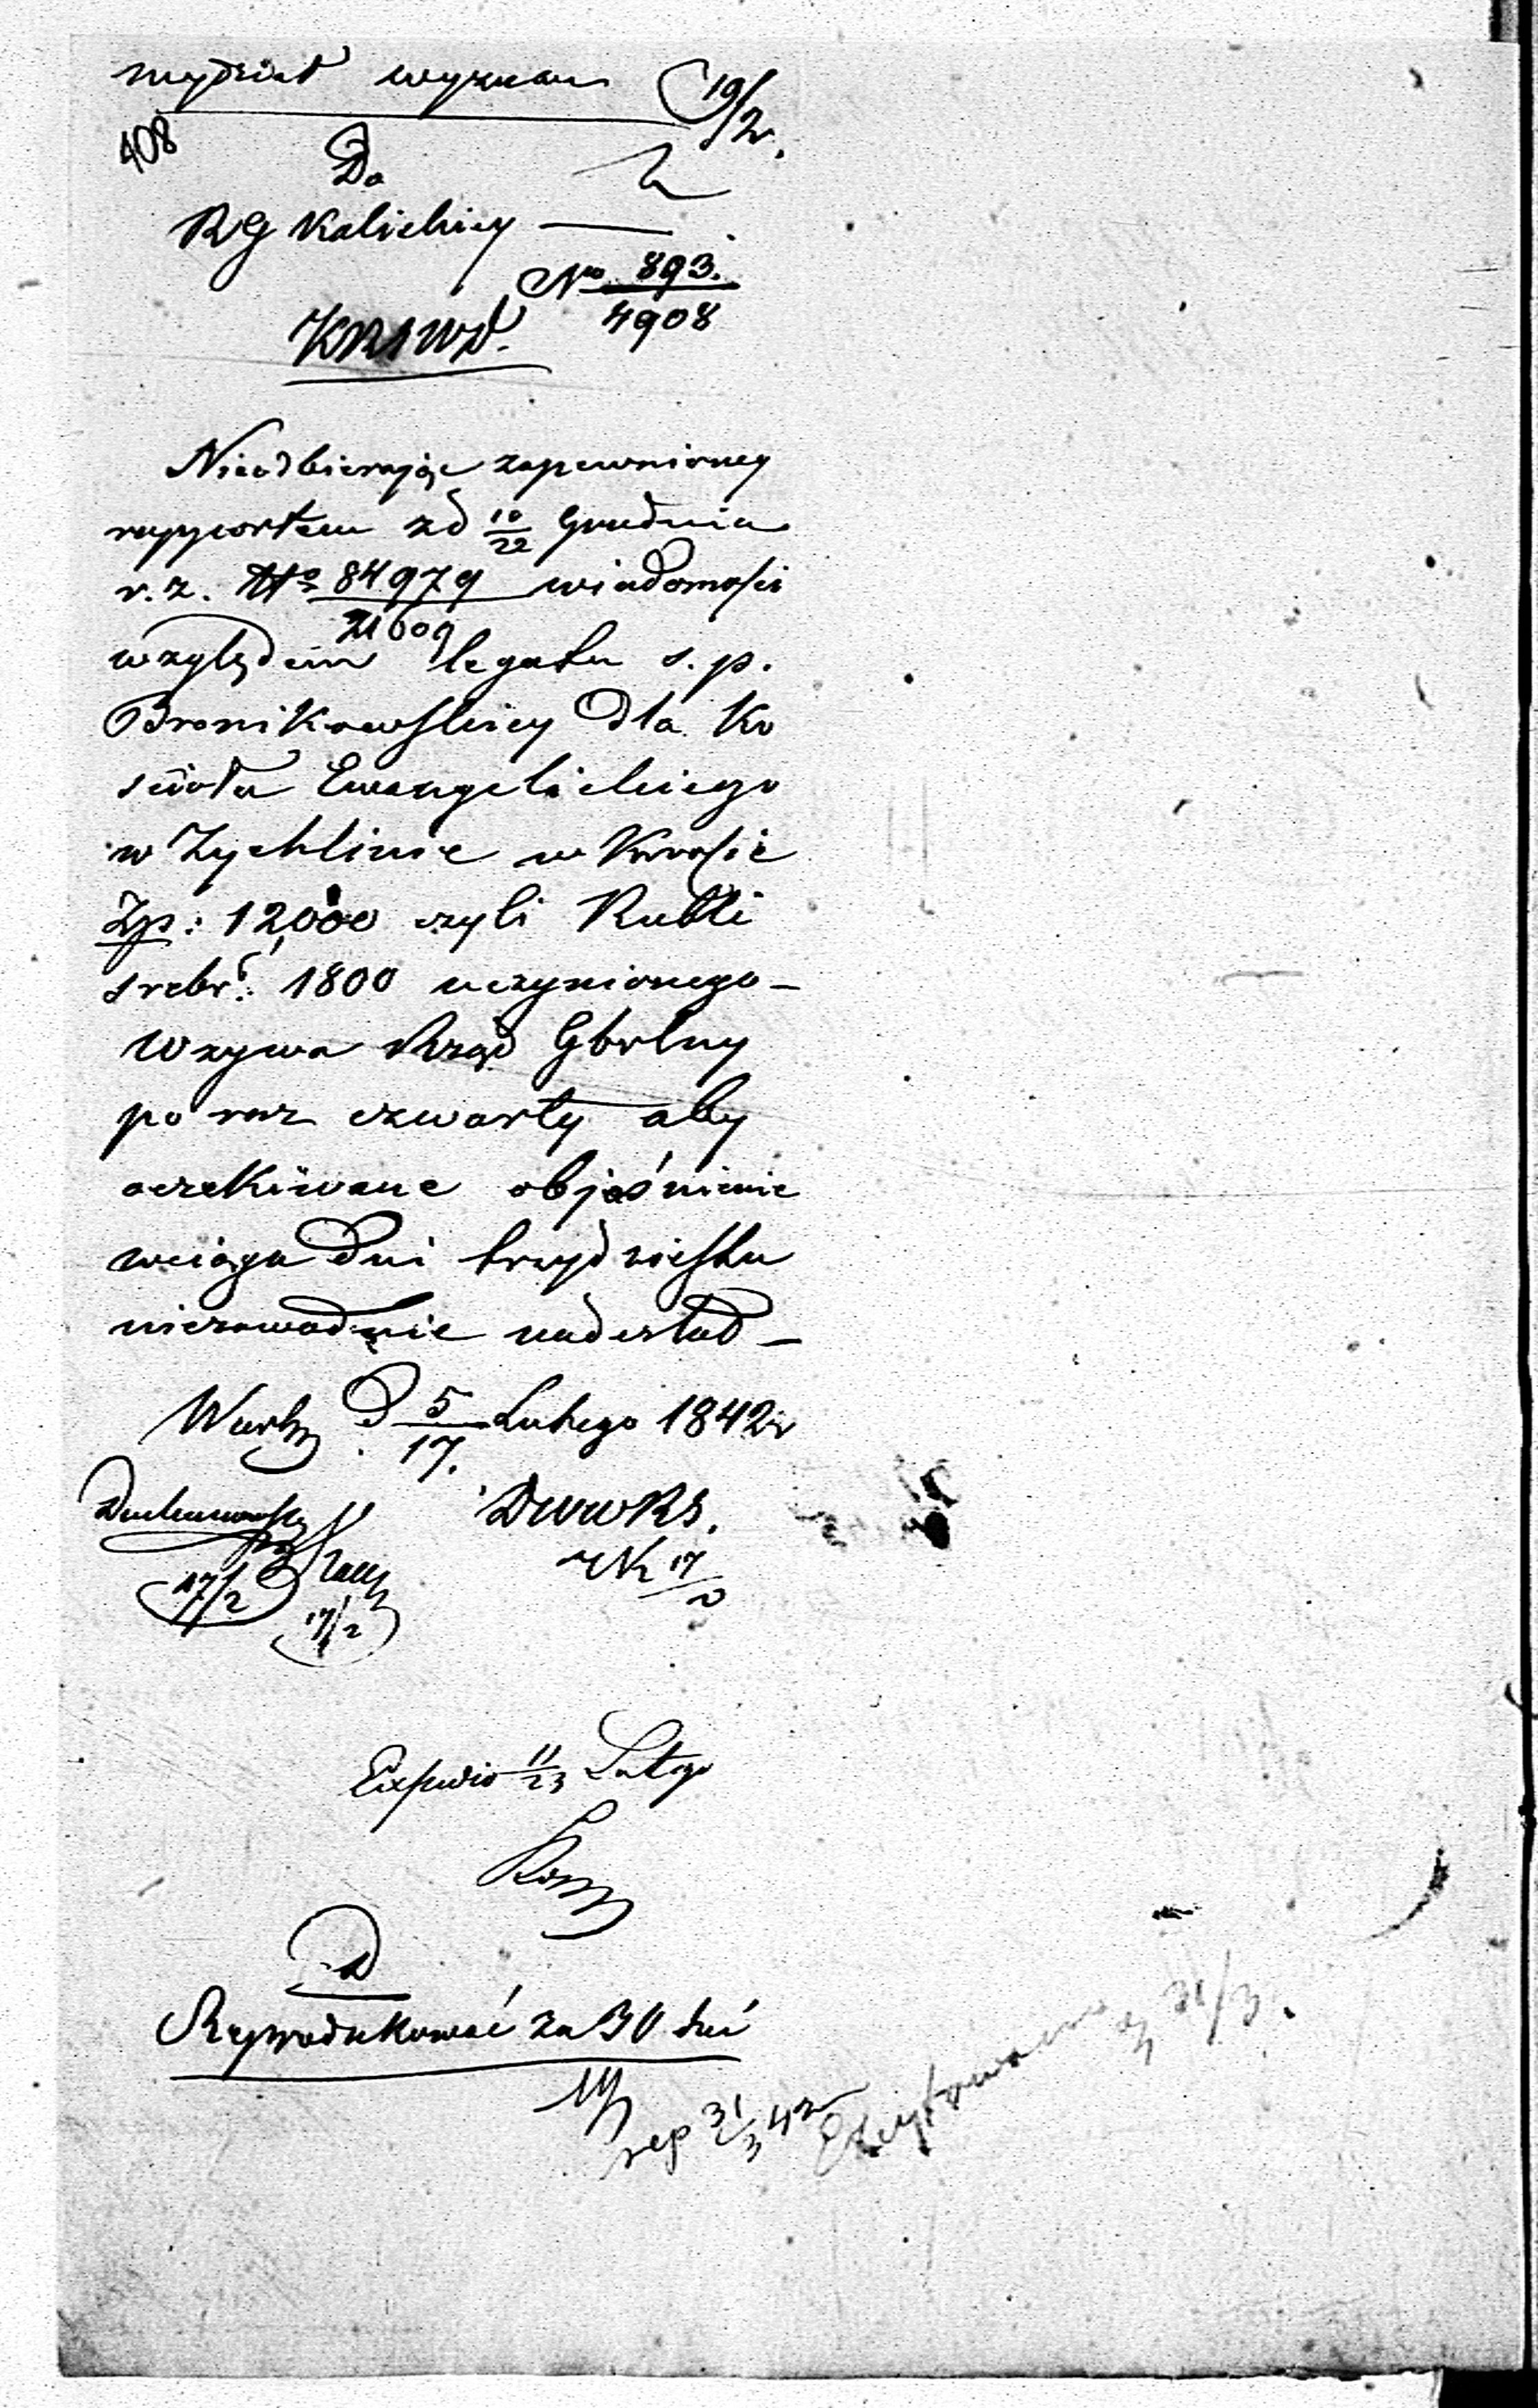 Wydział wyznań 19/2.
408
Do
RG Kaliskiey —
No 893.
4908
KRSWD.
Nieodbierając zapewnioney
rapportem z d 10/22 Grudnia
r. z. No 84979/21609 wiadomości
względem legatu s. p.
Bronikowskiey dla Ko
scioła Ewangelickiego
w Zychlinie w kwocie
Zp: 12,000 czyli Rubli
srebr: 1800 uczynionego —
Wzywa Rząd Gbrlny
po raz czwarty aby
oczekiwane objaśnienie
wciągu dni trzydziestu
niezawodnie nadesłał —
Warsz d 5/17. Lutego 1842 r
DWWRS.
17/2
17/2
17/2
Expedio 11/23 Lutego
D
Reprodukować za 30 dni
rep 31/3 42
Excytowano 31/3.